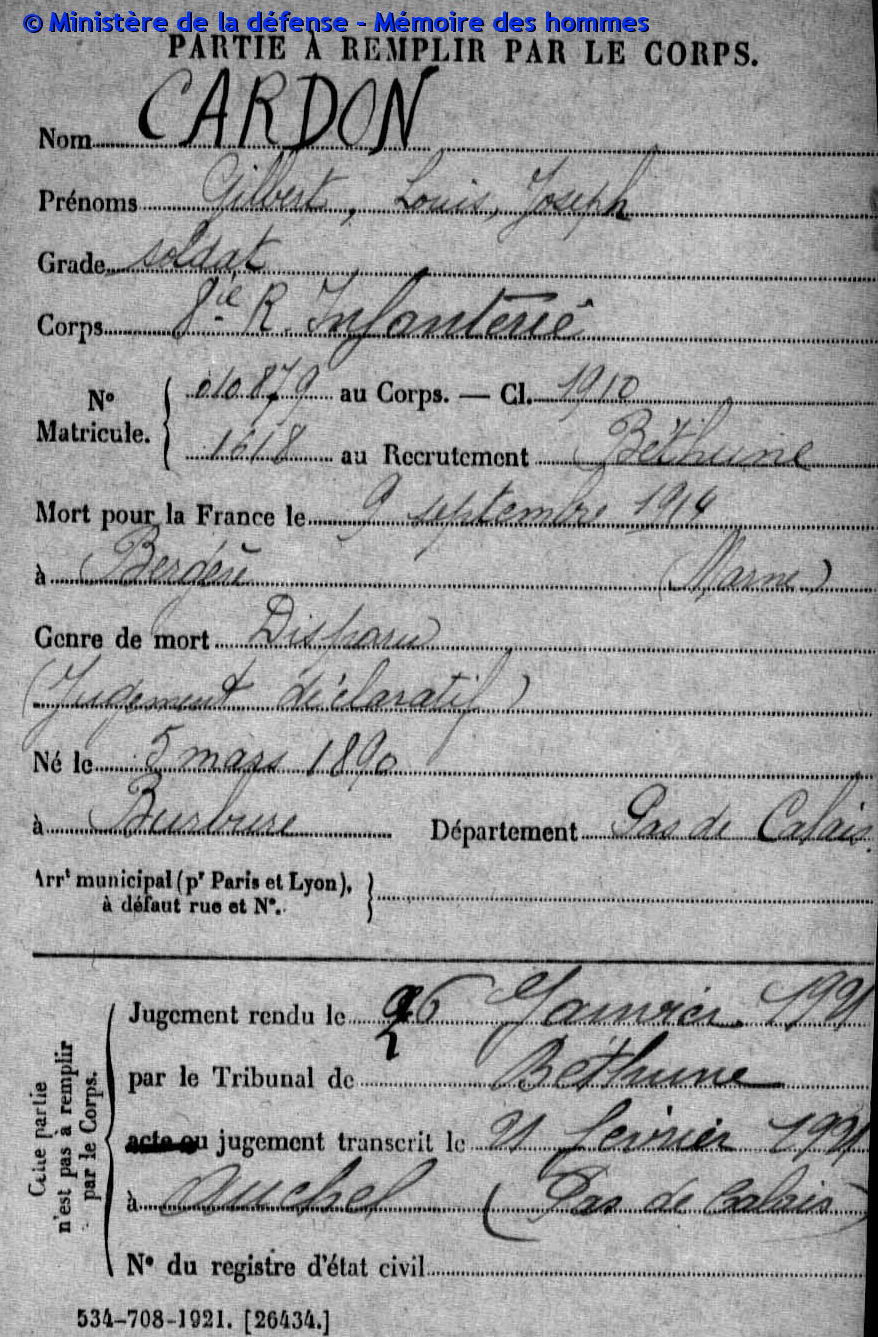 © Ministère de la défense - Mémoire des hommes
PARTIE À REMPLIR PAR LE CORPS.
Nom CARDON
Prénoms Gilbert, Louis, Joseph
Grade soldat
Corps 8ie R. Infanterie
No Matricule. 010879 au Corps. — Cl. 1910
1618 au Recrutement Béthune
Mort pour la France le 9 septembre 1914
à Bergère (Marne)
Genre de mort Disparu
(Jugement déclaratif)
Né le 5 mars 1890
à Burbure Département Pas de Calais
Arrt municipal (pr Paris et Lyon),
à défaut rue et No.
Cette partie n'est pas à remplir par le Corps.
Jugement rendu le 26 Janvier 1921
par le Tribunal de Béthune
acte ou jugement transcrit le 21 février 1921
à Auchel (Pas de Calais)
No du registre d'état civil
534-708-1921. [26434.]